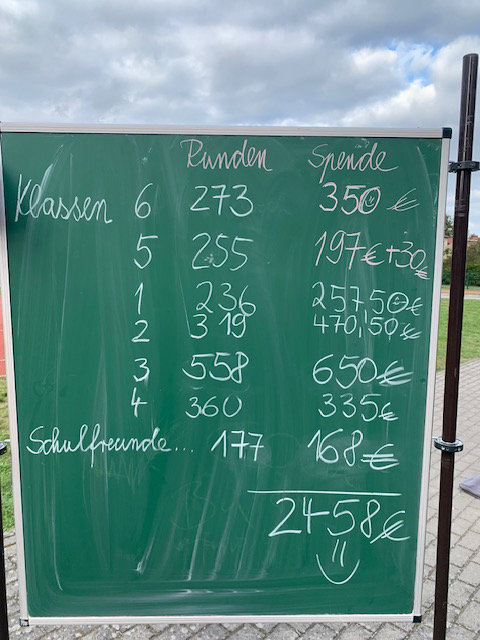 Runden Spende
Klassen 6 273 350 €
5 255 197€ + 30€
1 236 257,50€
2 319 470,50€
3 558 650€
4 360 335€
Schulfreunde... 177 168€
2458€